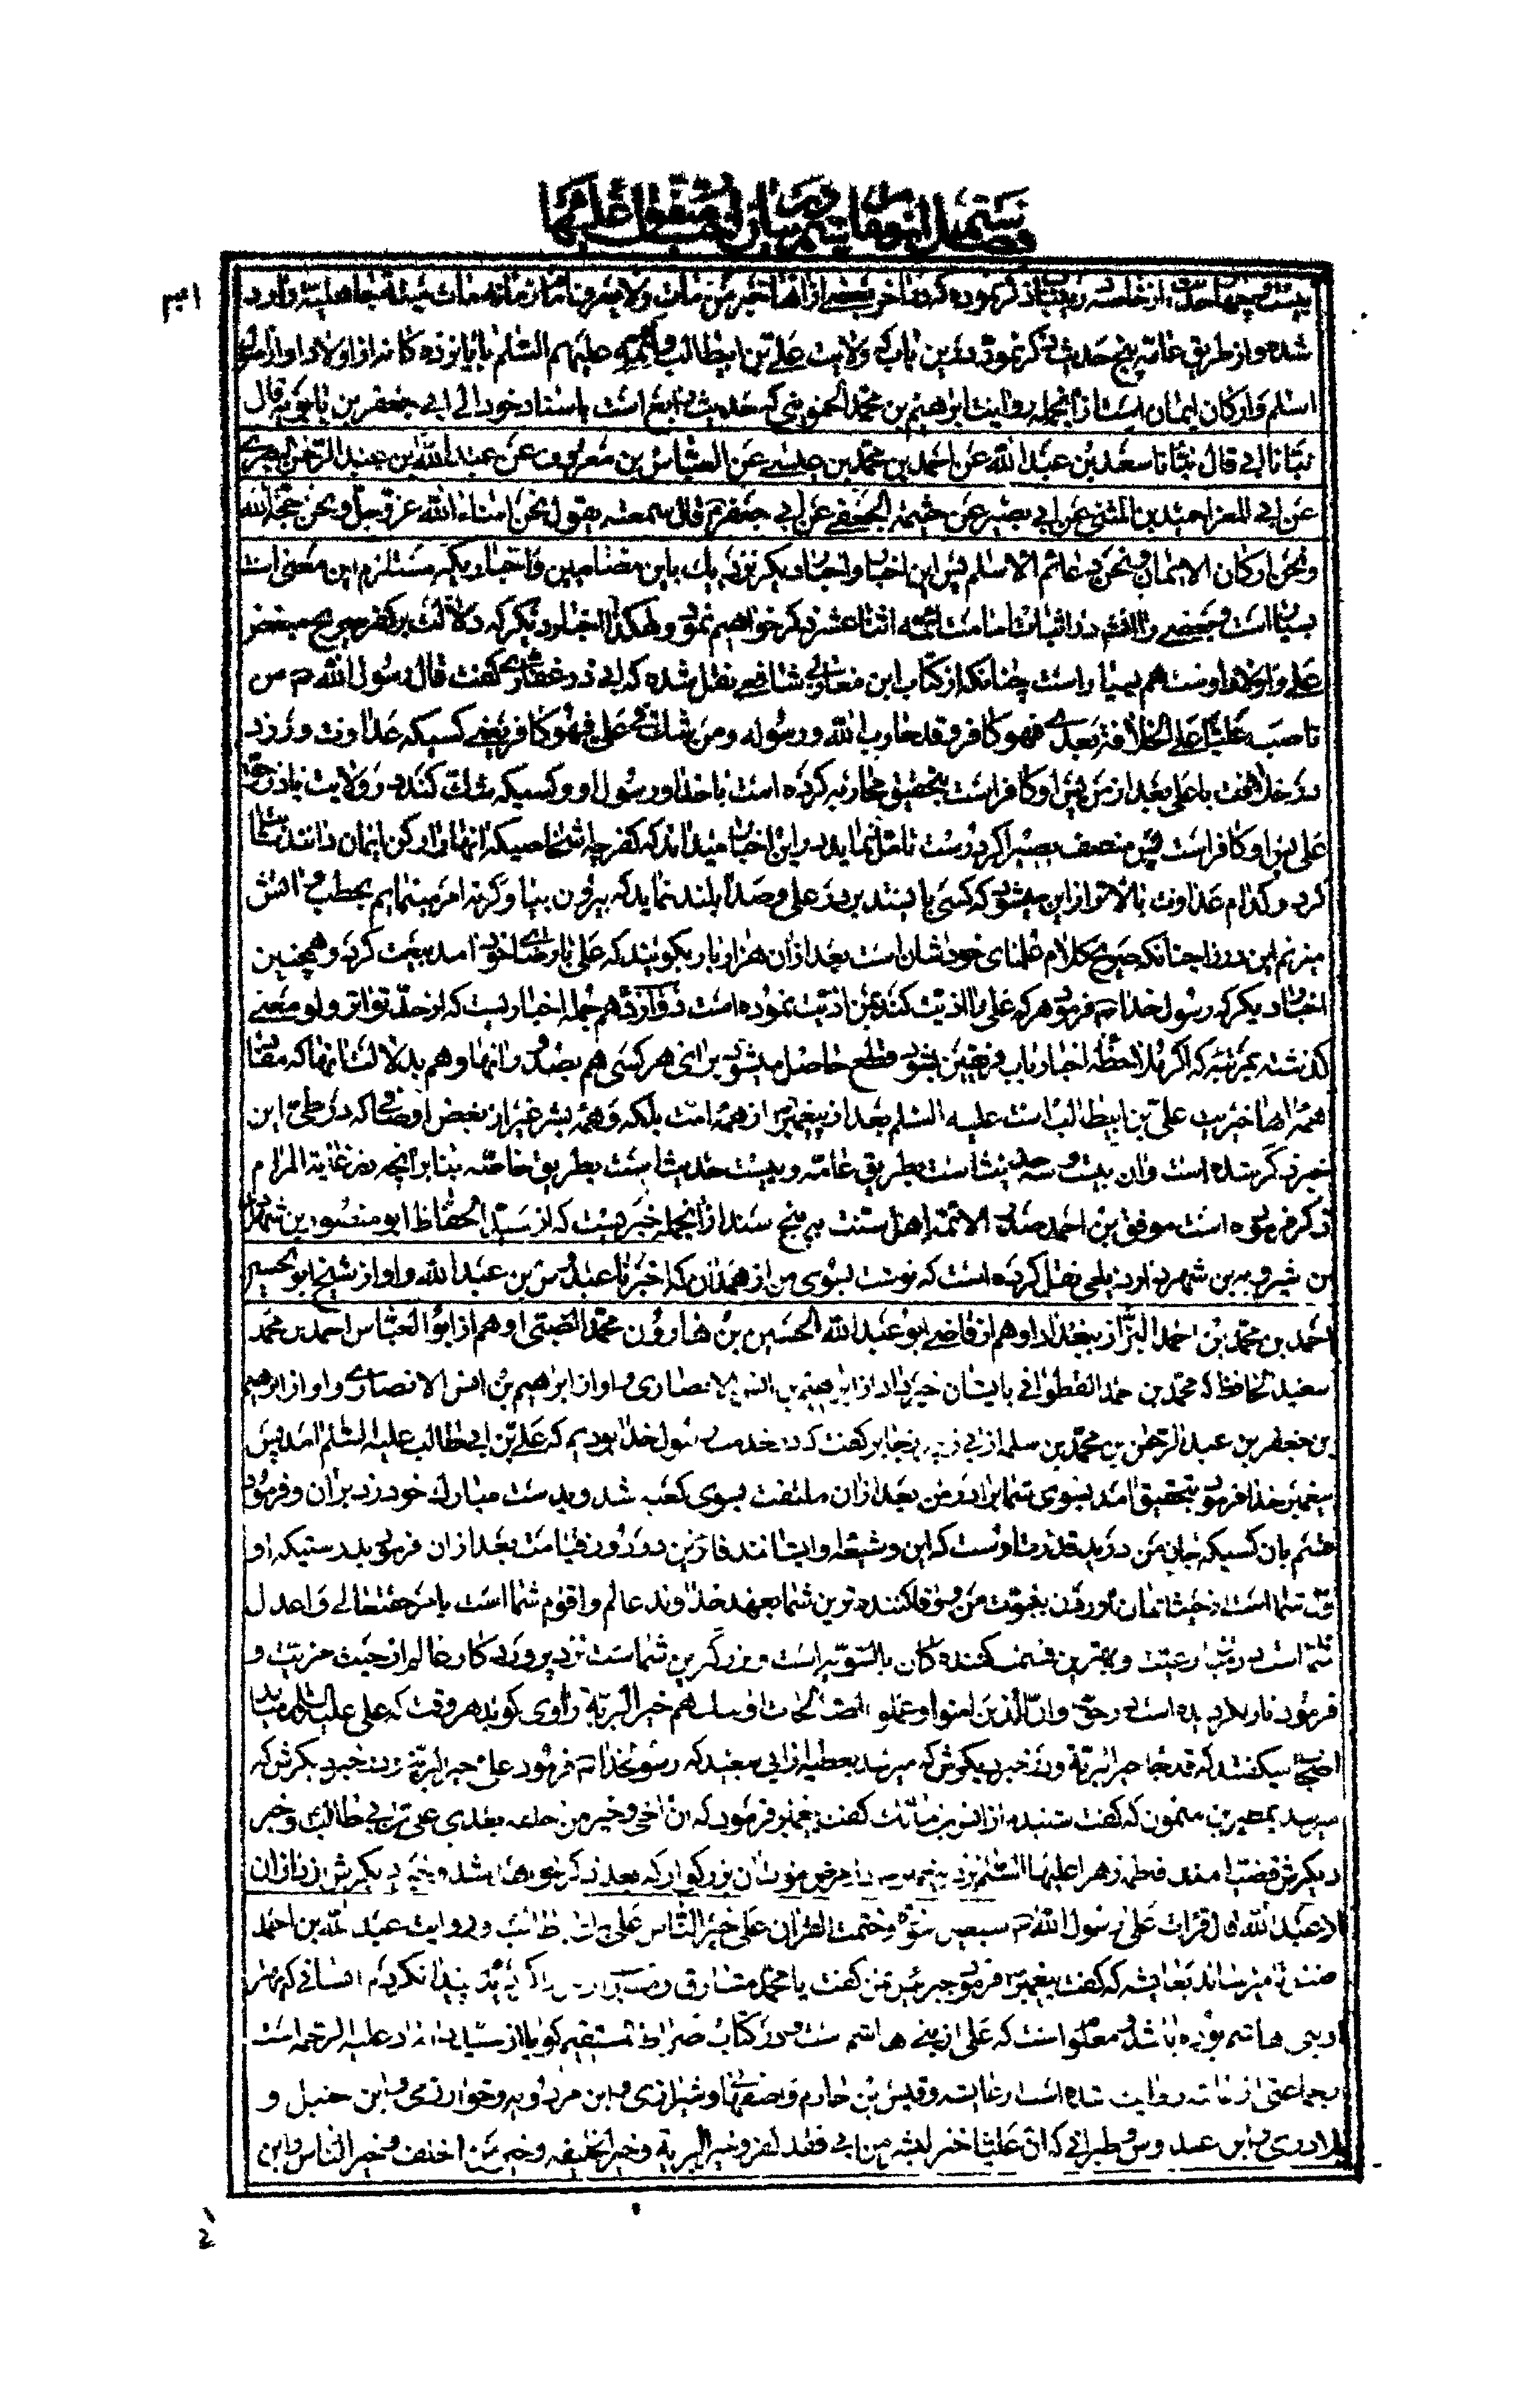 ۳۴۱
بیست و چهار حدیث از خاصه در ذکر نموده که در آخر بعضی از آنها خبر من مات ولا یعرف امام زمانه مات میتة جاهلیة وارد
شده و از طریق عامه پنج حدیث ذکر نموده درین باب که ولایت علی بن ابیطالب و ائمه علیهم السلم با یازده کانه از اولاد او از اصول
اسلم و ارکان ایمان است از آنجمله روایت ابرهیم بن محمد الحموینی که حدیث رابع است باسناد خود الی ابی جعفر بن بابویه قال
نبانا ابی قال نبانا سعد بن عبد الله عن احمد بن محمد بن عیسی عن العباس بن معروف عن عبد الله بن عبد الرحمن البصری
عن ابی المعزا حمید بن المثنی عن ابی بصیر عن خثیمة الجعفی عن ابی جعفر قال سمعته یقول نحن امناء الله عز و جل و نحن حجج الله
و نحن ارکان الایمان و نحن دعائم الاسلم پس این اخبار و اخبار دیکر نزدیک باین مضامین و اخبار دیکر مستلزم این معنی است
بسیار است و بعضی را انشاء در اثبات امامت ائمه اثنا عشر ذکر خواهیم نمود و هکذا اخبار دیکر که دلالت بر کفر صریح مبغض
علی و اولاد اوست هم بسیار است چنانکه از کتاب ابن مغازلی شافعی نقل شده که ابی ذر غفاری کفت قال رسول الله من
ناصب علیا علی الخلافة بعدی فهو کافر و قد حارب الله و رسوله و من شک فی علی فهو کافر یعنی کسیکه عداوت ورزد
در خلافت با علی بعد از من پس او کافر است بتحقیق محاربه کرده است با خدا و رسول او و کسیکه شک کند در ولایت یا در حق
علی پس او کافر است پس منصف بصیر اگر درست تامل نماید در این اخبار میداند که کفر چه اشخاصیکه آنها را رکن ایمان دانند ثابت
کرد و کدام عداوت بالاتر از این میشود که کسی بایستد بر در علی و صدا بلند نماید که بیرون بیا و گرنه امر مینمایم بحطب و آتش
میزنم این در را چنانکه صریح کلام علمای خودشان است بعد از آن هزار بار بکویند که علی با رضای خود آمد بیعت کرد و همچنین
اخبار دیکر که رسول خدا فرمود هر که علی را اذیت کند بمن اذیت نموده است دوازدهم جمله اخباریست که از حد تواتر ولو معنی
کذشته بمرتبه که اکر ملاحظه اخبار باب فریقین بشود قطع حاصل میشود برای هر کسی هم بصدور آنها و هم بدلالت آنها که مفاد
همه آنها خیریت علی بن ابیطالب است علیه السلم بعد از پیغمبر از همه امت بلکه و همه بشر غیر از بعض اوصیا که در طی این
خبر ذکر شده است و ان بیست و سه حدیثاست بطریق عامه و بیست حدیثاست بطریق خاصه بنا بر آنچه در غایة المرام
ذکر فرموده است موفق بن احمد صدر الائمه اهل سنت به پنج سند از آنجمله خبریست که از سید الحفاظ ابو منصور بن شهردار
بن شیرویه بن شهردار دیلمی نقل کرده است که نوشت بسوی من از همدان که اخبرنا عبدوس بن عبد الله و او از شیخ ابو الحسین
احمد بن محمد بن احمد البزاز ببغداد او هم از قاضی ابو عبد الله الحسین بن هارون محمد الضبی او هم از ابو العباس احمد بن محمد
سعید الحافظ که محمد بن احمد القطوانی بایشان خبر داد از ابرهیم بن انس الانصاری و او از ابراهیم بن انس الانصاری و او از ابرهیم
بن جعفر بن عبد الرحمن بن محمد بن سلمه از ابی زبیر از جابر کفت که در خدمت رسول خدا بودیم که علی بن ابی طالب علیه السلم آمد پس
پیغمبر خدا فرمود بتحقیق آمد بسوی شما برادر من بعد از آن ملتفت بسوی کعبه شد و بدست مبارک خود زد بر آن و فرمود
قسم بان کسیکه جان من در ید قدرت اوست که این و شیعه او ایشانند فائزین در روز قیامت بعد از ان فرمود بدرستیکه او
اول شما است ز حیث ایمان آوردن بنبوت من و وفا کننده‌ترین شما بعهد خداوند عالم و اقوم شما است بامر حقتعالی و اعدل
شما است در باب رعیت و بهترین قسمت کنندکان بالسویه است و بزرکترین شما است نزد پروردکار عالم از حیث مزیت و
فرمود نازل کردیده است در حق او ان الذین امنوا و عملو الصالحات اولئک هم خیر البریة راوی کوید هر وقت که علی علیه السلم میامد
اصحاب میکفتند که قد جاء خیر البریة و در خبر دیکرش که میرسد بعطیه از ابی سعید که رسول خدا فرمود علی خیر البریة در خبر دیکرش که
میرسد بمطیر بن میمون که کفت شنیدم از انس بن مالک کفت پیغمبر فرمود که ان اخی و خیر من اخلفه بعدی علی بن ابی طالب و خبر
دیکرش قصه آمدن فطمه زهرا علیها السلم نزد پیغمبر در مرض موت آن بزرکوار که بعد ذکر خواهد شد و خبر دیکرش از زاذان
از عبد الله قال قرات علی رسول الله سبعین سورة و ختمت القران علی خیر الناس علی بن ابی طالب و روایت عبد الله بن احمد
سند را میرساند بعایشه که کفت پیغمبر فرمود جبرئیل بمن کفت یا محمد مشارق و مغارب را کردیدم پیدا نکردم انسانی که بهتر
از بنی هاشم بوده باشد و معلوم است که علی از بنی هاشم است و در کتاب صراط المستقیم کویا از سید داماد علیه الرحمه است
بجماعتی از عامه روایت شده است از عایشه و قیس بن حازم و اصفهانی و شیرازی و ابن مردویه و خوارزمی و ابن حنبل و
بلاذری و ابن عبدوس و طبرانی که ان علیا خیر البشر من ابی فقد کفر و خیر البریة و خیر الخلیفه و خیر من اخلف و خیر الناس و ابن